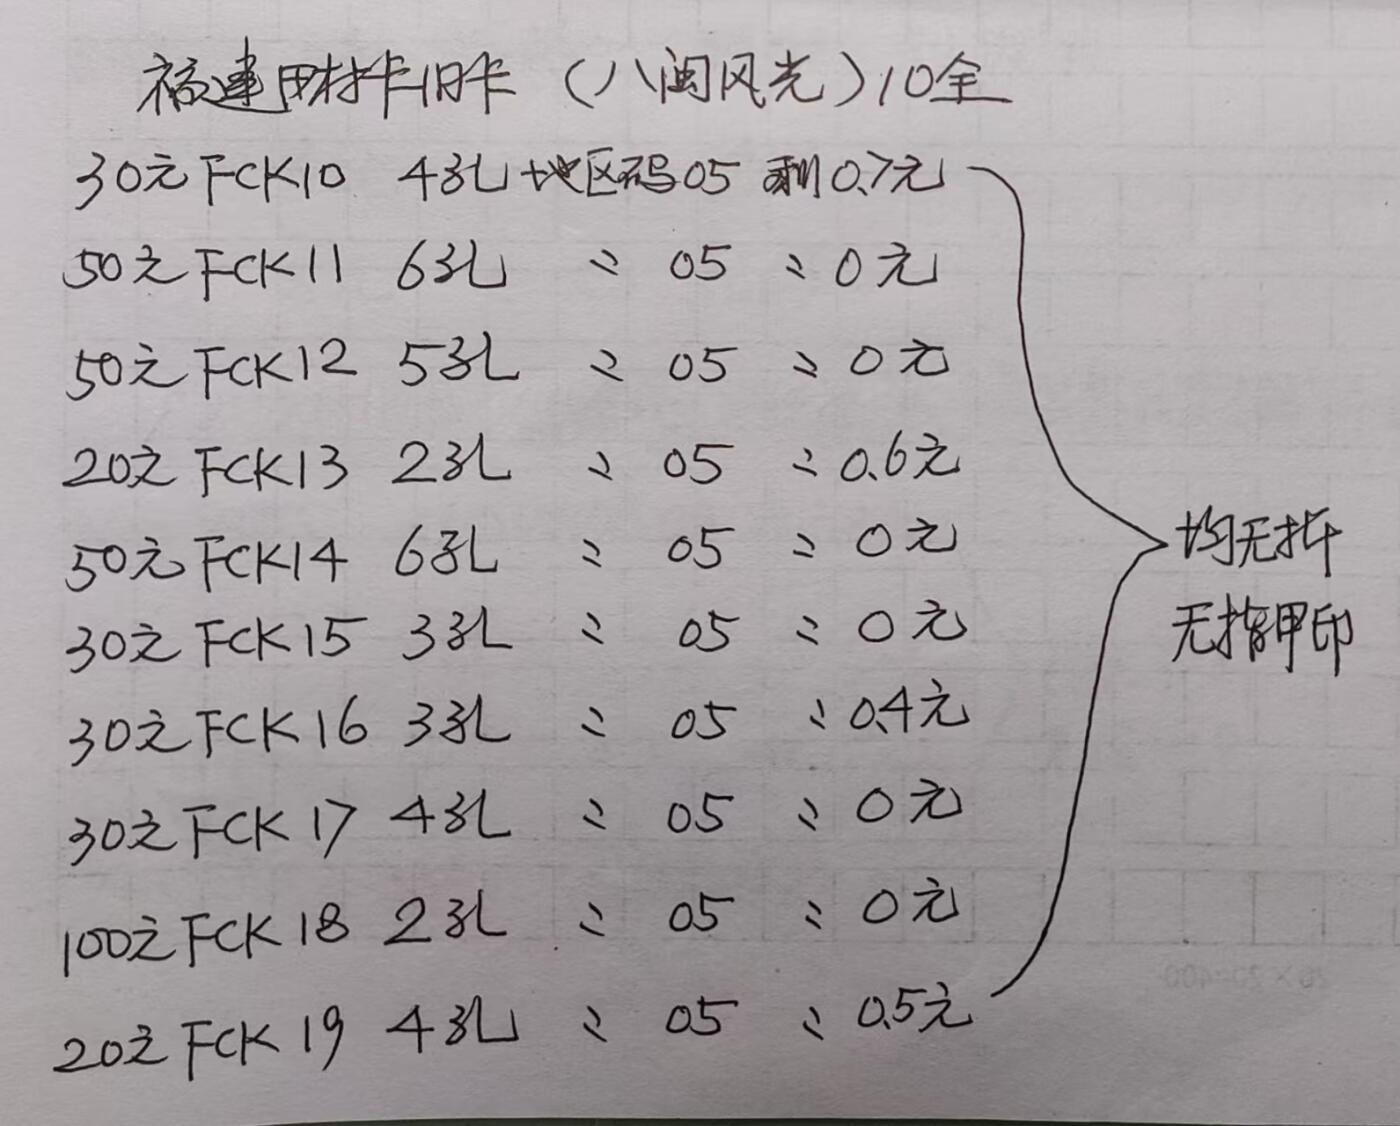 福建田村卡旧卡（八闽风光）10全
30元FCK10 4孔 地区码05 剩0.7元
50元FCK11 6孔 〃 05 〃0元
50元FCK12 5孔 〃 05 〃0元
20元FCK13 2孔 〃 05 〃0.6元
50元FCK14 6孔 〃 05 〃0元
30元FCK15 3孔 〃 05 〃0元
30元FCK16 3孔 〃 05 〃0.4元
30元FCK17 4孔 〃 05 〃0元
100元FCK18 2孔 〃 05 〃0元
20元FCK19 4孔 〃 05 〃0.5元
均无折
无指甲印